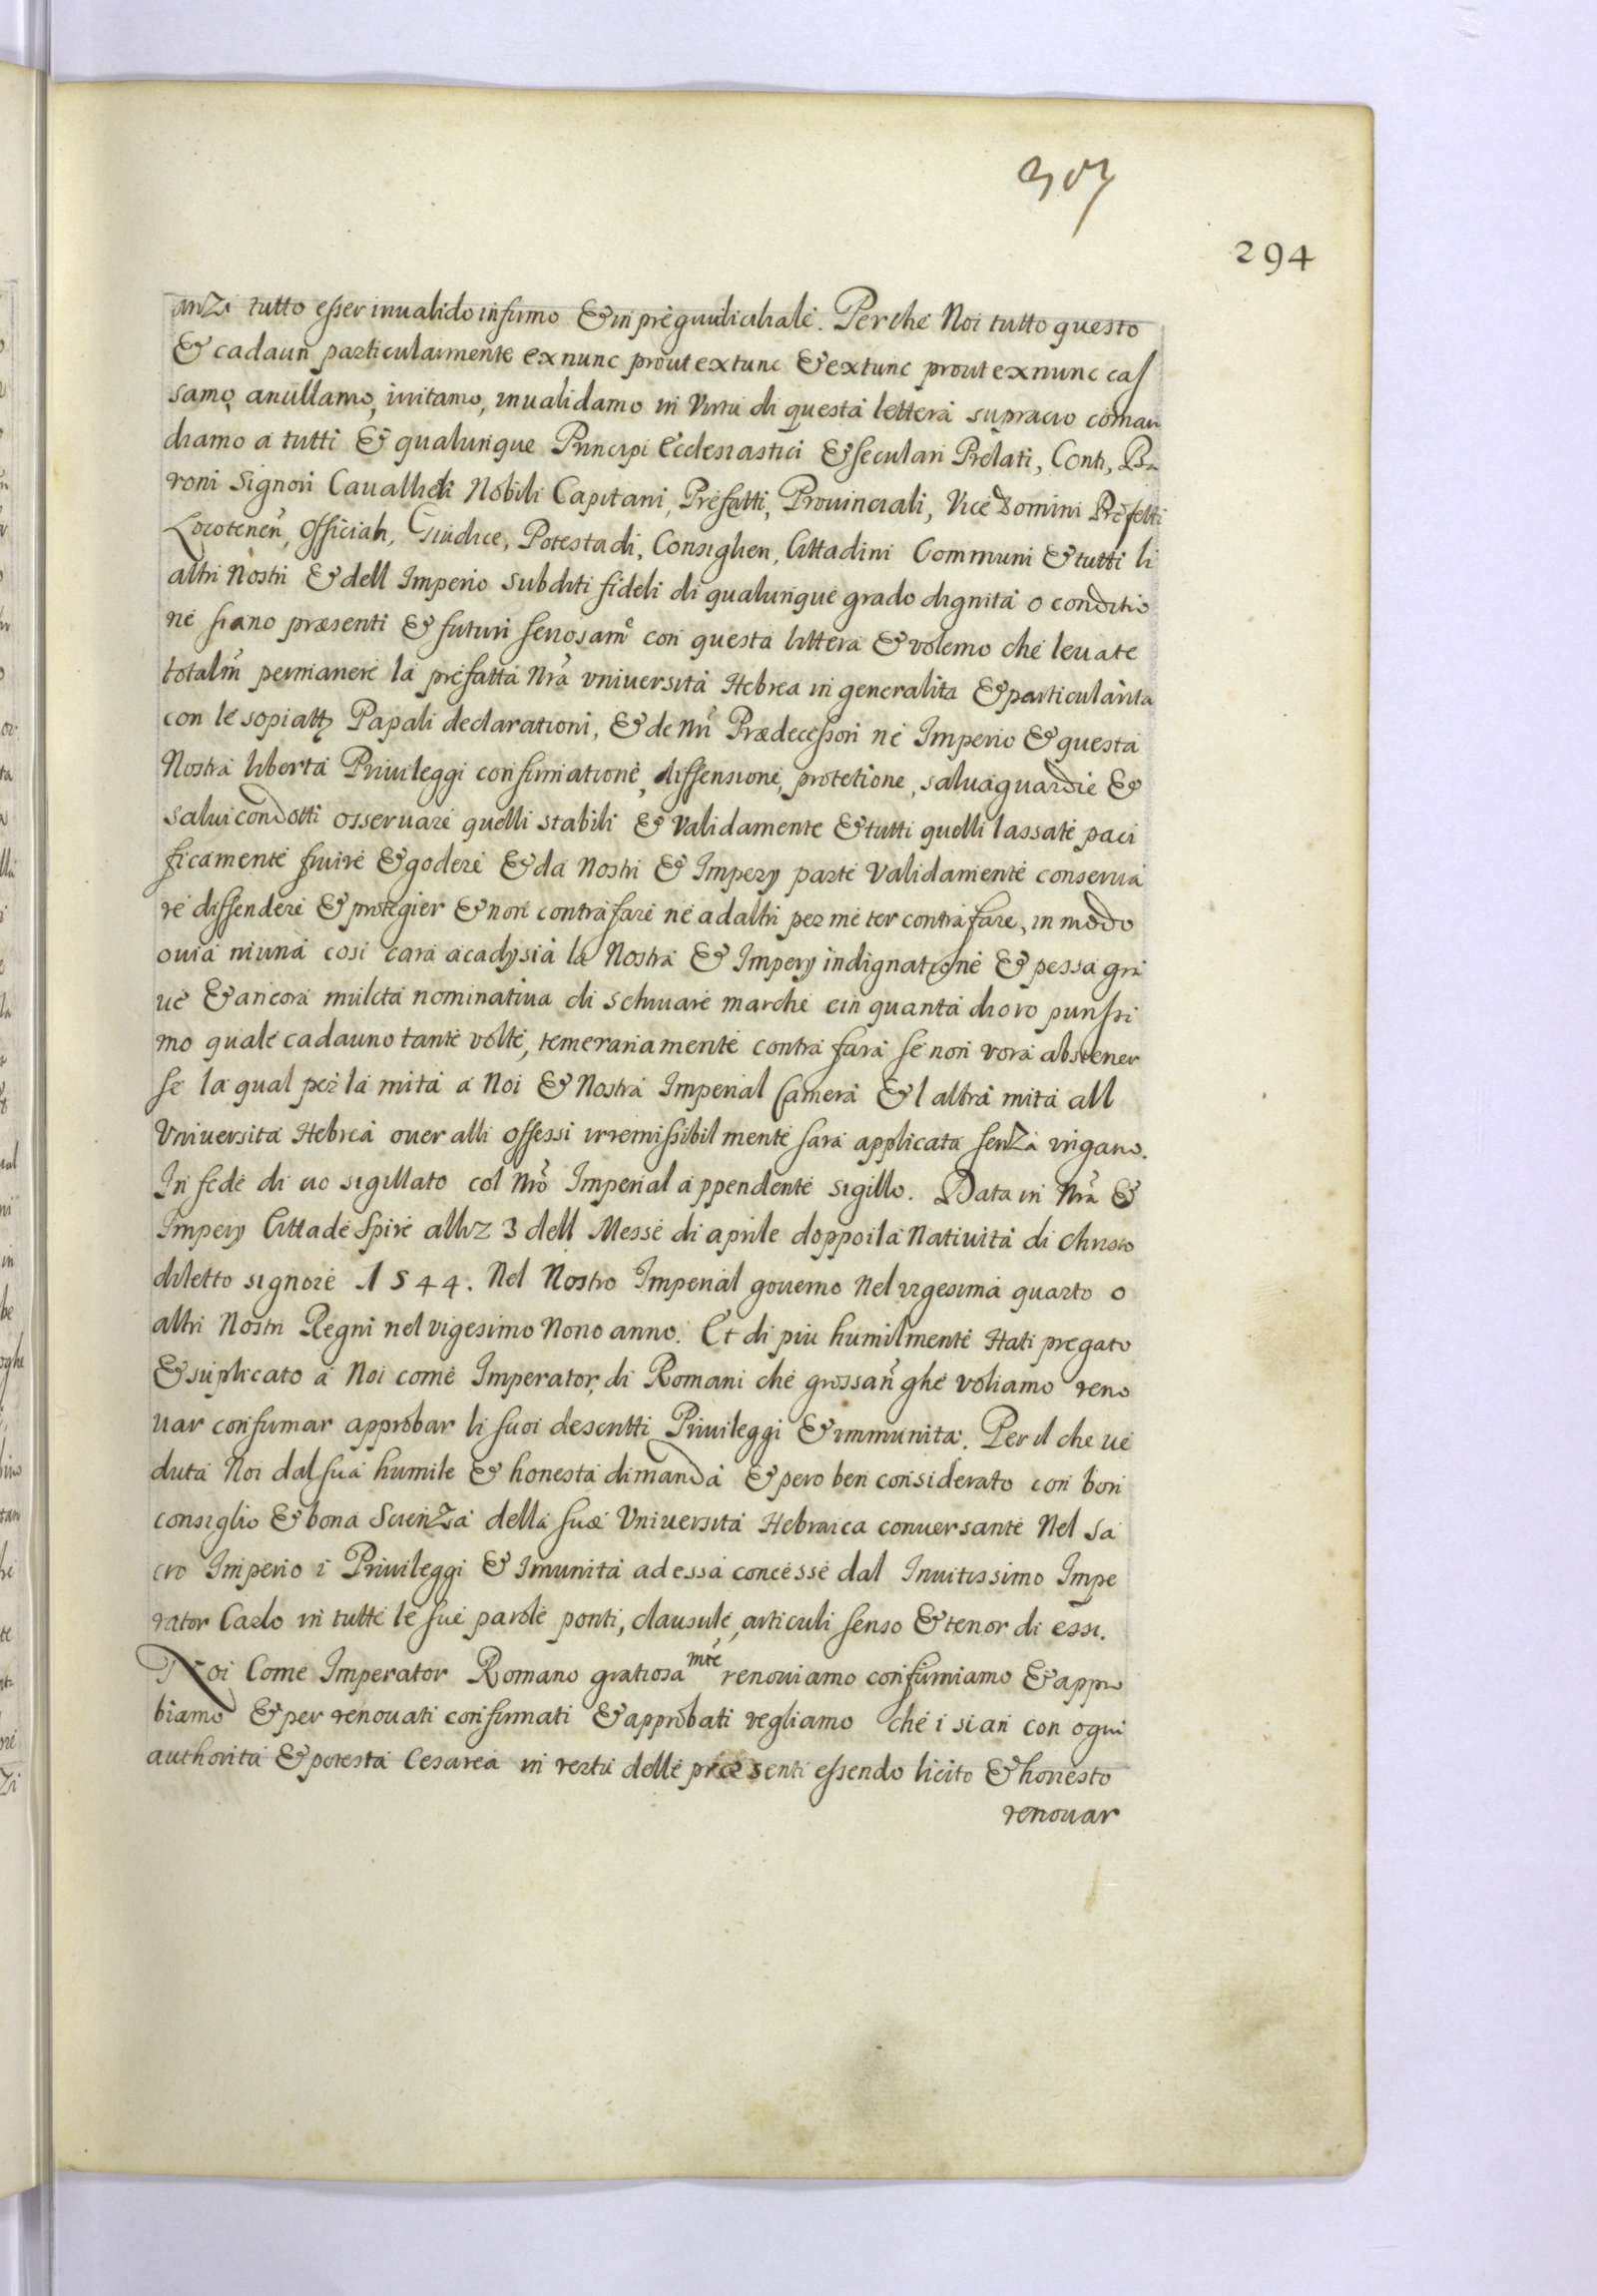 307
294
anzi tutto esser inualido infirmo & in pregiudichale. Perche Noi tutto questo
& cadaun particularmente ex nunc prout ex tunc & ex tunc prout ex nunc cas
samo, anullamo, irritamo, inualidamo in Virtù di questa lettera supracio coman
diamo a tutti & qualunque Principi Ecclesiastici & seculari Prelati, Conti, Ba
roni Signori Cauallieri Nobili Capitani, Prefatti, Prouinciali, Vice Domini Prefetti
Locotenen, Officiali, Giudice, Potestadi, Consiglieri, Cittadini Communi & tutti li
altri Nostri & dell Imperio subditi fideli di qualunque grado dignita o conditio
ne siano præsenti & futuri con questa littera & volemo che leuate
totalm permanere la prefatta Nra vniuersita Hebrea in generalita & particularita
con le Papali declarationi, & de Nri Prædecessori ne Imperio & questa
Nostra liberta Priuileggi confirmatione, diffensione, protetione, saluaguardie &
saluicondotti osseruare quelli stabili & Validamente & tutti quelli lassate paci
ficamente fruire & godere & da Nostri & Impery parte Validamente conserua
re diffendere & protegier & non contrafare ne ad altri permeter contrafare, in modo
ouia niuna cosi cara acadysia la Nostra & Impery indignatione & pessa gra
ue & ancora mulcta nominatiua di schiuare marche cin quanta dioro purissi
mo quale cadauno tante volte, temerariamente contra fara se non vora abstener
se la qual per la mita a Noi & Nostra Imperial Camera & l altra mita all
Vniuersita Hebrea ouer alli offessi irremissibilmente sara applicata senza ingano.
In fede di cio sigillato col Nro Imperial appendente sigillo. Data in Nra &
Impery Cittade Spire alli 3 dell Messe di aprile doppoi la Natiuita di Christo
diletto signore 1544. Nel Nostro Imperial gouerno Nel vigesima quarto o
altri Nostri Regni nel vigesimo Nono anno. Et di piu humilmente stati pregato
& suplicato a Noi come Imperator di Romani che ghe voliamo reno
uar confirmar approbar li suoi descritti Priuileggi & immunita. Per il che ue
duta Noi dal sua humile & honesta dimanda & pero ben considerato con bon
consiglio & bona Scienza della suæ Vniuersita Hebraica conuersante Nel Sa
cro Imperio i Priuileggi & Imunita adessa concesse dal Inuitissimo Impe
rator Carlo in tutte le sue parole ponti, clausule, articuli senso & tenor di essi.
Noi Come Imperator Romano gratiosamte renouiamo confirmiamo & appro
biamo & per renouati confirmati & approbati vegliamo che i sian con ogni
authorita & potesta Cesarea in vertu delle præsenti essendo licito & honesto
renouar